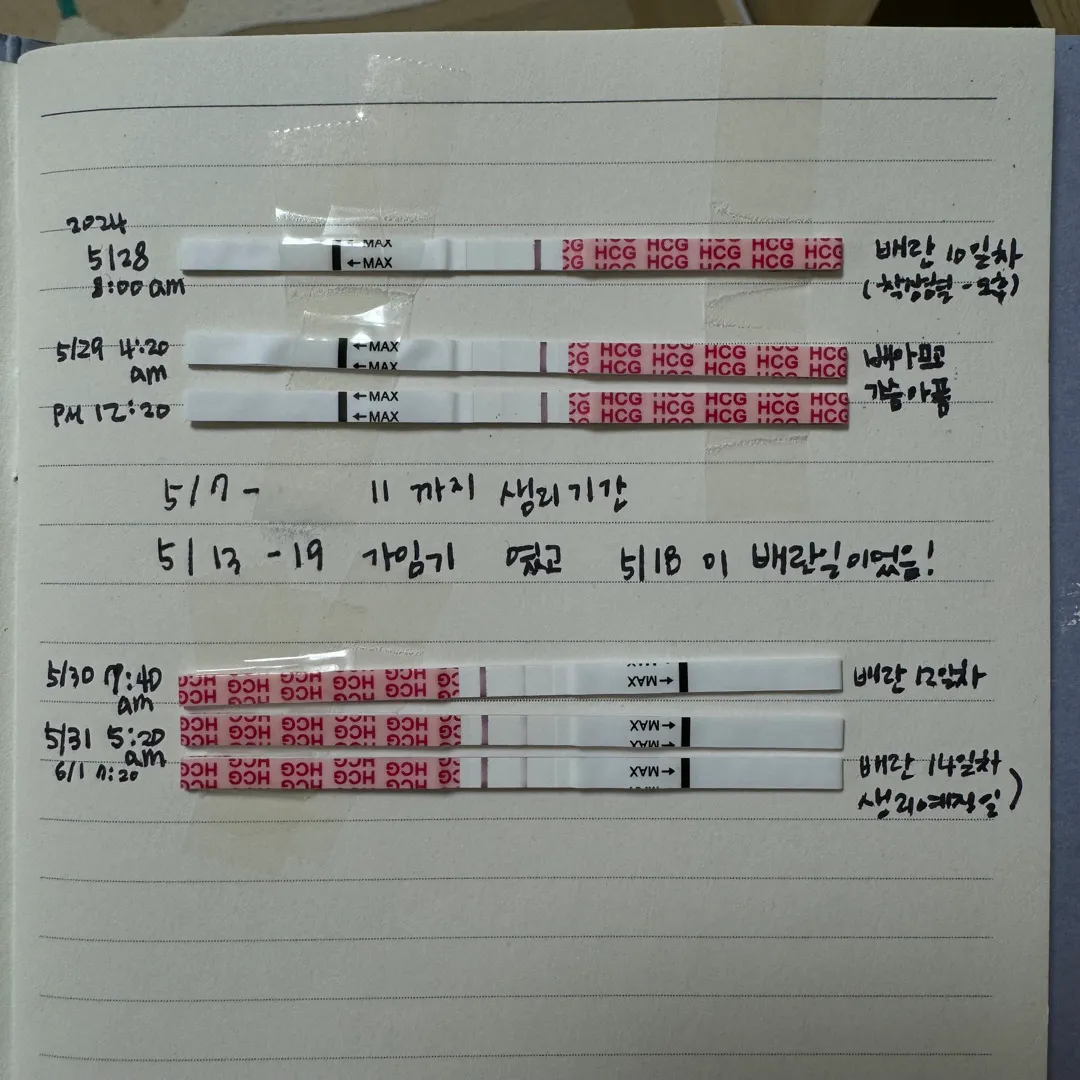 2024
5/28
8:00 am
←MAX
←MAX
HCG HCG HCG HCG HCG
HCG HCG HCG HCG HCG
배란 10일차
(착상혈 - 오후)
5/29 4:20
am
←MAX
←MAX
HCG HCG HCG HCG HCG
HCG HCG HCG HCG HCG
배아프고
가슴아픔
PM 12:20
←MAX
←MAX
HCG HCG HCG HCG HCG
HCG HCG HCG HCG HCG
5/7 - 11 까지 생리기간
5/13 - 19 가임기 였고 5/18 이 배란일이었음!
5/30 7:40
am
HCG HCG HCG HCG HCG
HCG HCG HCG HCG HCG
←MAX
배란 12일차
5/31 5:20
am
HCG HCG HCG HCG HCG
HCG HCG HCG HCG HCG
←MAX
6/1 7:20
HCG HCG HCG HCG HCG
HCG HCG HCG HCG HCG
←MAX
배란 14일차
생리예정일)